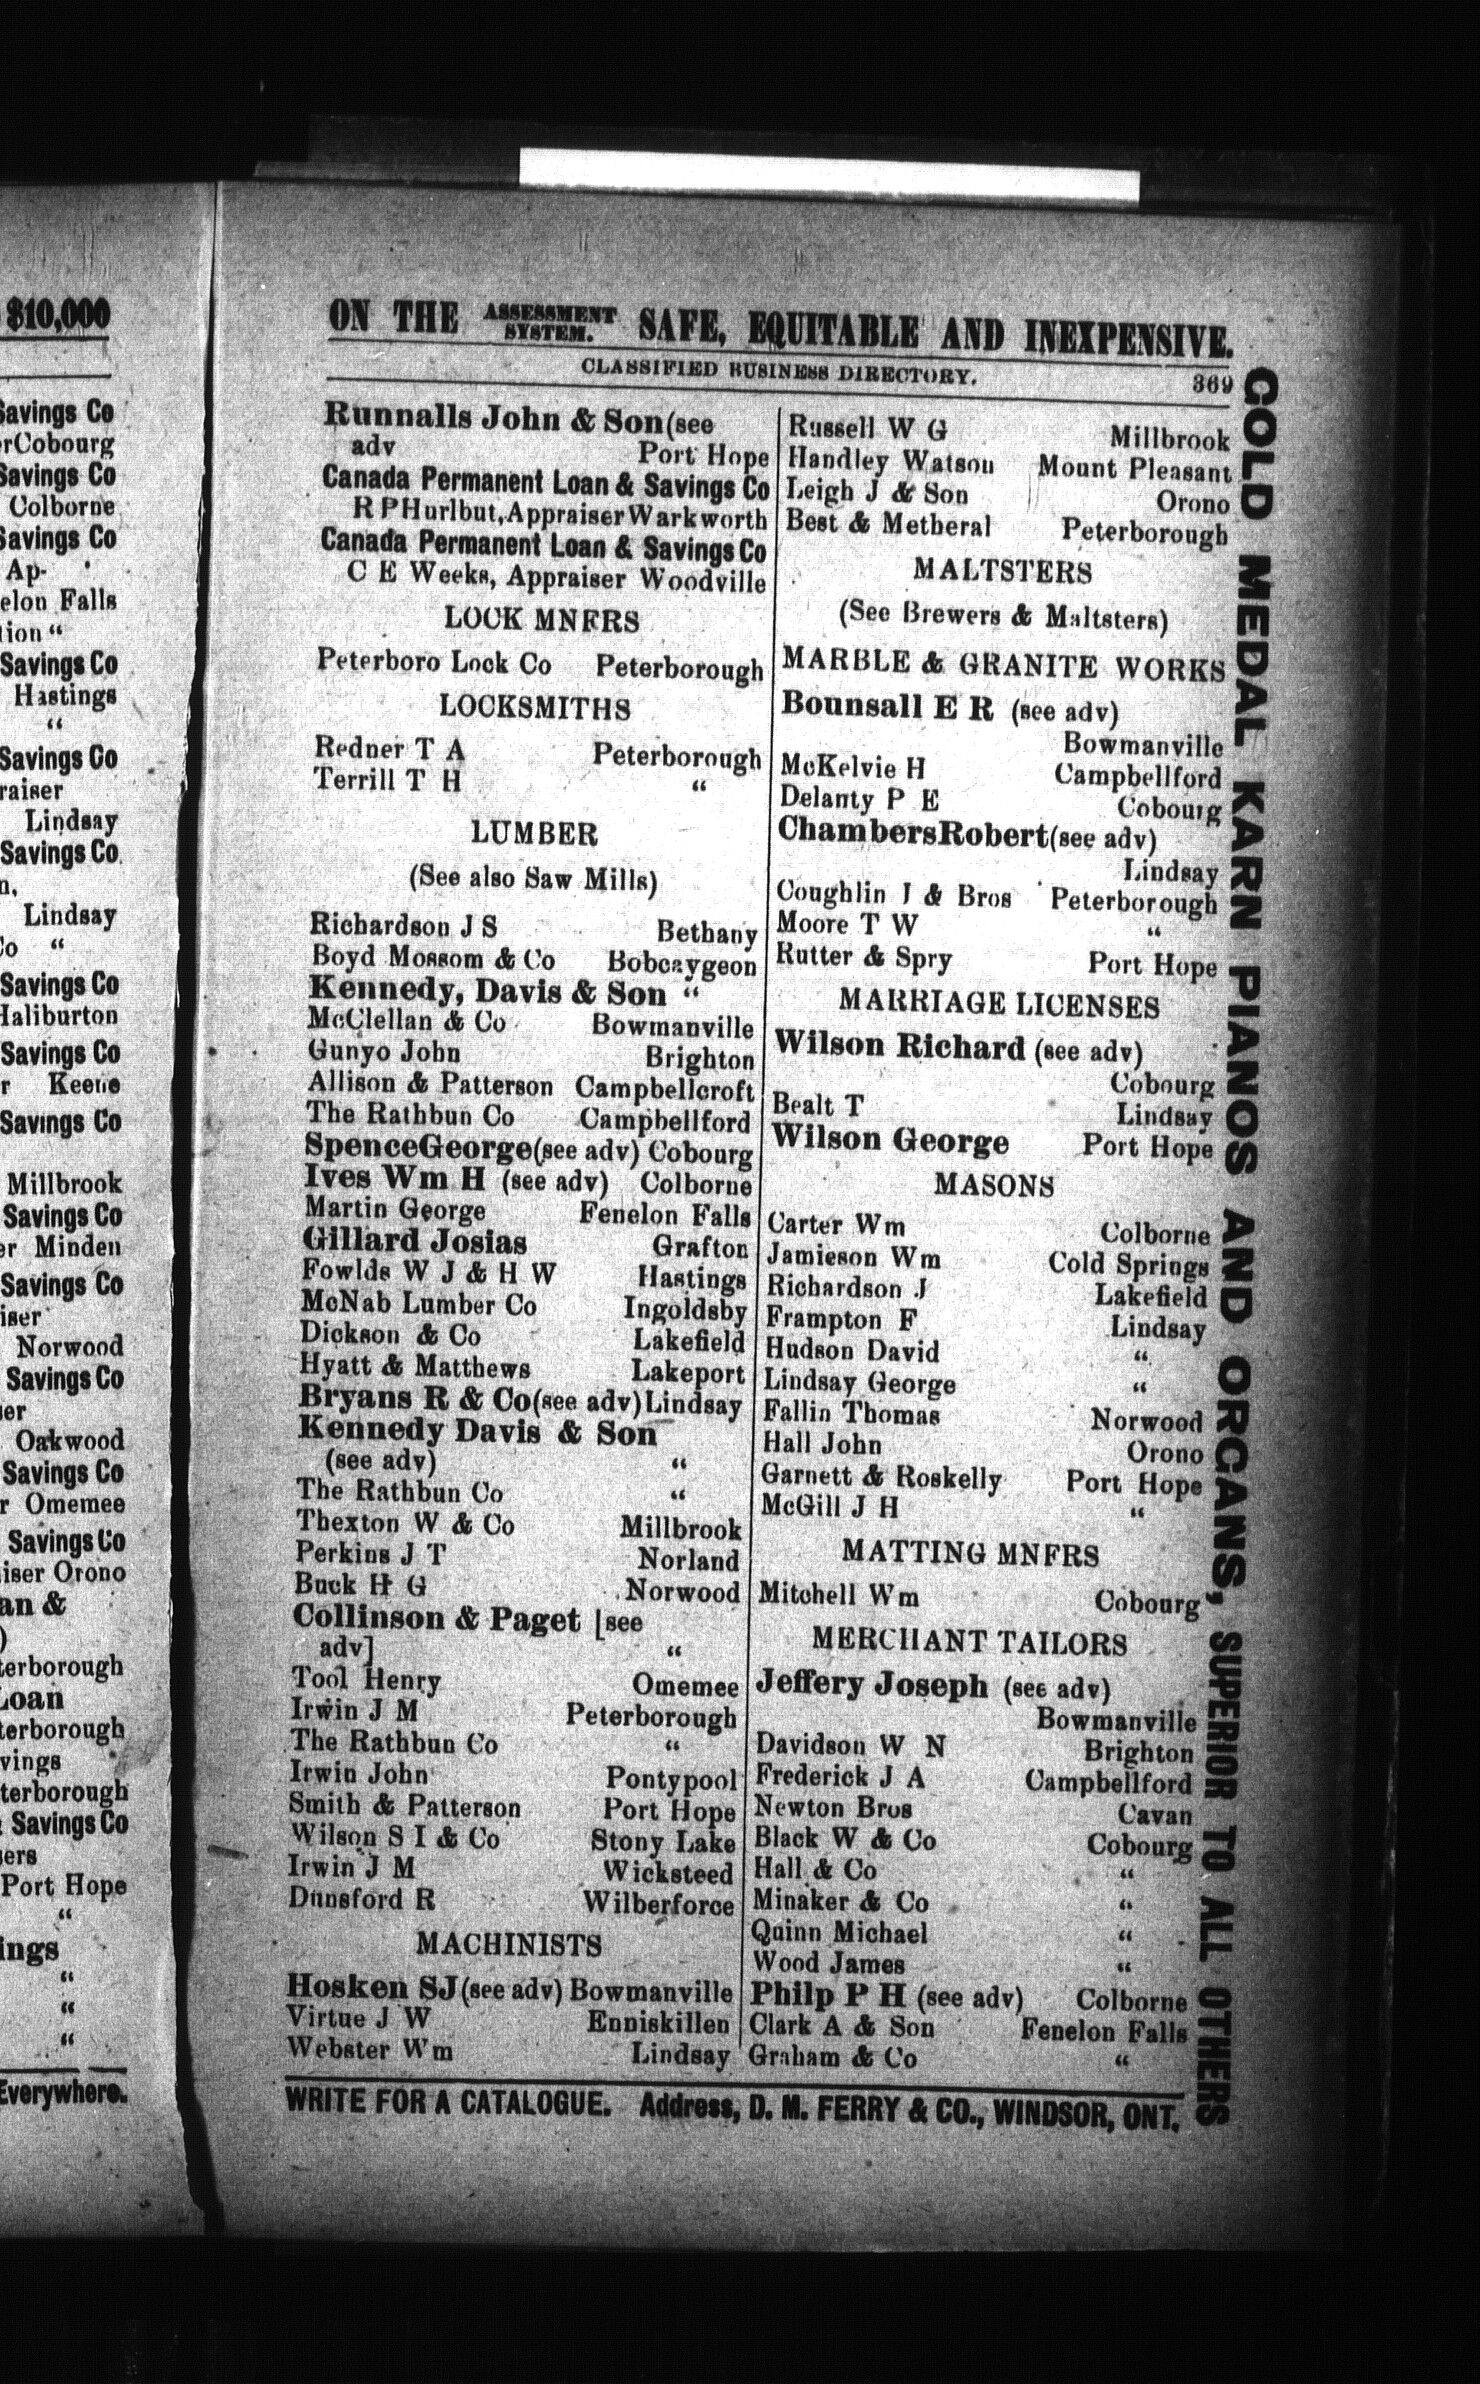 $10,000
Savings Co
Cobourg
Savings Co
Colborne
Savings Co
Ap-
elon Falls
tion "
Savings Co
Hastings
"
Savings Co
raiser
Lindsay
Savings Co
n,
Lindsay
Co "
Savings Co
Haliburton
Savings Co
r Keene
Savings Co
Millbrook
Savings Co
er Minden
Savings Co
iser
Norwood
Savings Co
ser
Oakwood
Savings Co
r Omemee
Savings Co
iser Orono
an &
)
terborough
Loan
terborough
vings
terborough
& Savings Co
sers
Port Hope
"
ings
"
"
"
Everywhere.
ON THE ASSESSMENT SYSTEM. SAFE, EQUITABLE AND INEXPENSIVE.
CLASSIFIED BUSINESS DIRECTORY. 369
Runnalls John & Son (see
adv Port Hope
Canada Permanent Loan & Savings Co
R P Hurlbut, Appraiser Warkworth
Canada Permanent Loan & Savings Co
C E Weeks, Appraiser Woodville
LOCK MNFRS
Peterboro Lock Co Peterborough
LOCKSMITHS
Redner T A Peterborough
Terrill T H "
LUMBER
(See also Saw Mills)
Richardson J S Bethany
Boyd Mossom & Co Bobcaygeon
Kennedy, Davis & Son "
McClellan & Co Bowmanville
Gunyo John Brighton
Allison & Patterson Campbellcroft
The Rathbun Co Campbellford
Spence George (see adv) Cobourg
Ives Wm H (see adv) Colborne
Martin George Fenelon Falls
Gillard Josias Grafton
Fowlds W J & H W Hastings
McNab Lumber Co Ingoldsby
Dickson & Co Lakefield
Hyatt & Matthews Lakeport
Bryans R & Co (see adv) Lindsay
Kennedy Davis & Son
(see adv) "
The Rathbun Co "
Thexton W & Co Millbrook
Perkins J T Norland
Buck H G Norwood
Collinson & Paget [see
adv] "
Tool Henry Omemee
Irwin J M Peterborough
The Rathbun Co "
Irwin John Pontypool
Smith & Patterson Port Hope
Wilson S I & Co Stony Lake
Irwin J M Wicksteed
Dunsford R Wilberforce
MACHINISTS
Hosken SJ (see adv) Bowmanville
Virtue J W Enniskillen
Webster Wm Lindsay
Russell W G Millbrook
Handley Watson Mount Pleasant
Leigh J & Son Orono
Best & Metheral Peterborough
MALTSTERS
(See Brewers & Maltsters)
MARBLE & GRANITE WORKS
Bounsall E R (see adv)
Bowmanville
McKelvie H Campbellford
Delanty P E Cobourg
Chambers Robert (see adv)
Lindsay
Coughlin J & Bros Peterborough
Moore T W "
Rutter & Spry Port Hope
MARRIAGE LICENSES
Wilson Richard (see adv)
Cobourg
Bealt T Lindsay
Wilson George Port Hope
MASONS
Carter Wm Colborne
Jamieson Wm Cold Springs
Richardson J Lakefield
Frampton F Lindsay
Hudson David "
Lindsay George "
Fallin Thomas Norwood
Hall John Orono
Garnett & Roskelly Port Hope
McGill J H "
MATTING MNFRS
Mitchell Wm Cobourg
MERCHANT TAILORS
Jeffery Joseph (see adv)
Bowmanville
Davidson W N Brighton
Frederick J A Campbellford
Newton Bros Cavan
Black W & Co Cobourg
Hall & Co "
Minaker & Co "
Quinn Michael "
Wood James "
Philp P H (see adv) Colborne
Clark A & Son Fenelon Falls
Graham & Co "
WRITE FOR A CATALOGUE. Address, D. M. FERRY & CO., WINDSOR, ONT.
GOLD MEDAL KARN PIANOS AND ORGANS, SUPERIOR TO ALL OTHERS